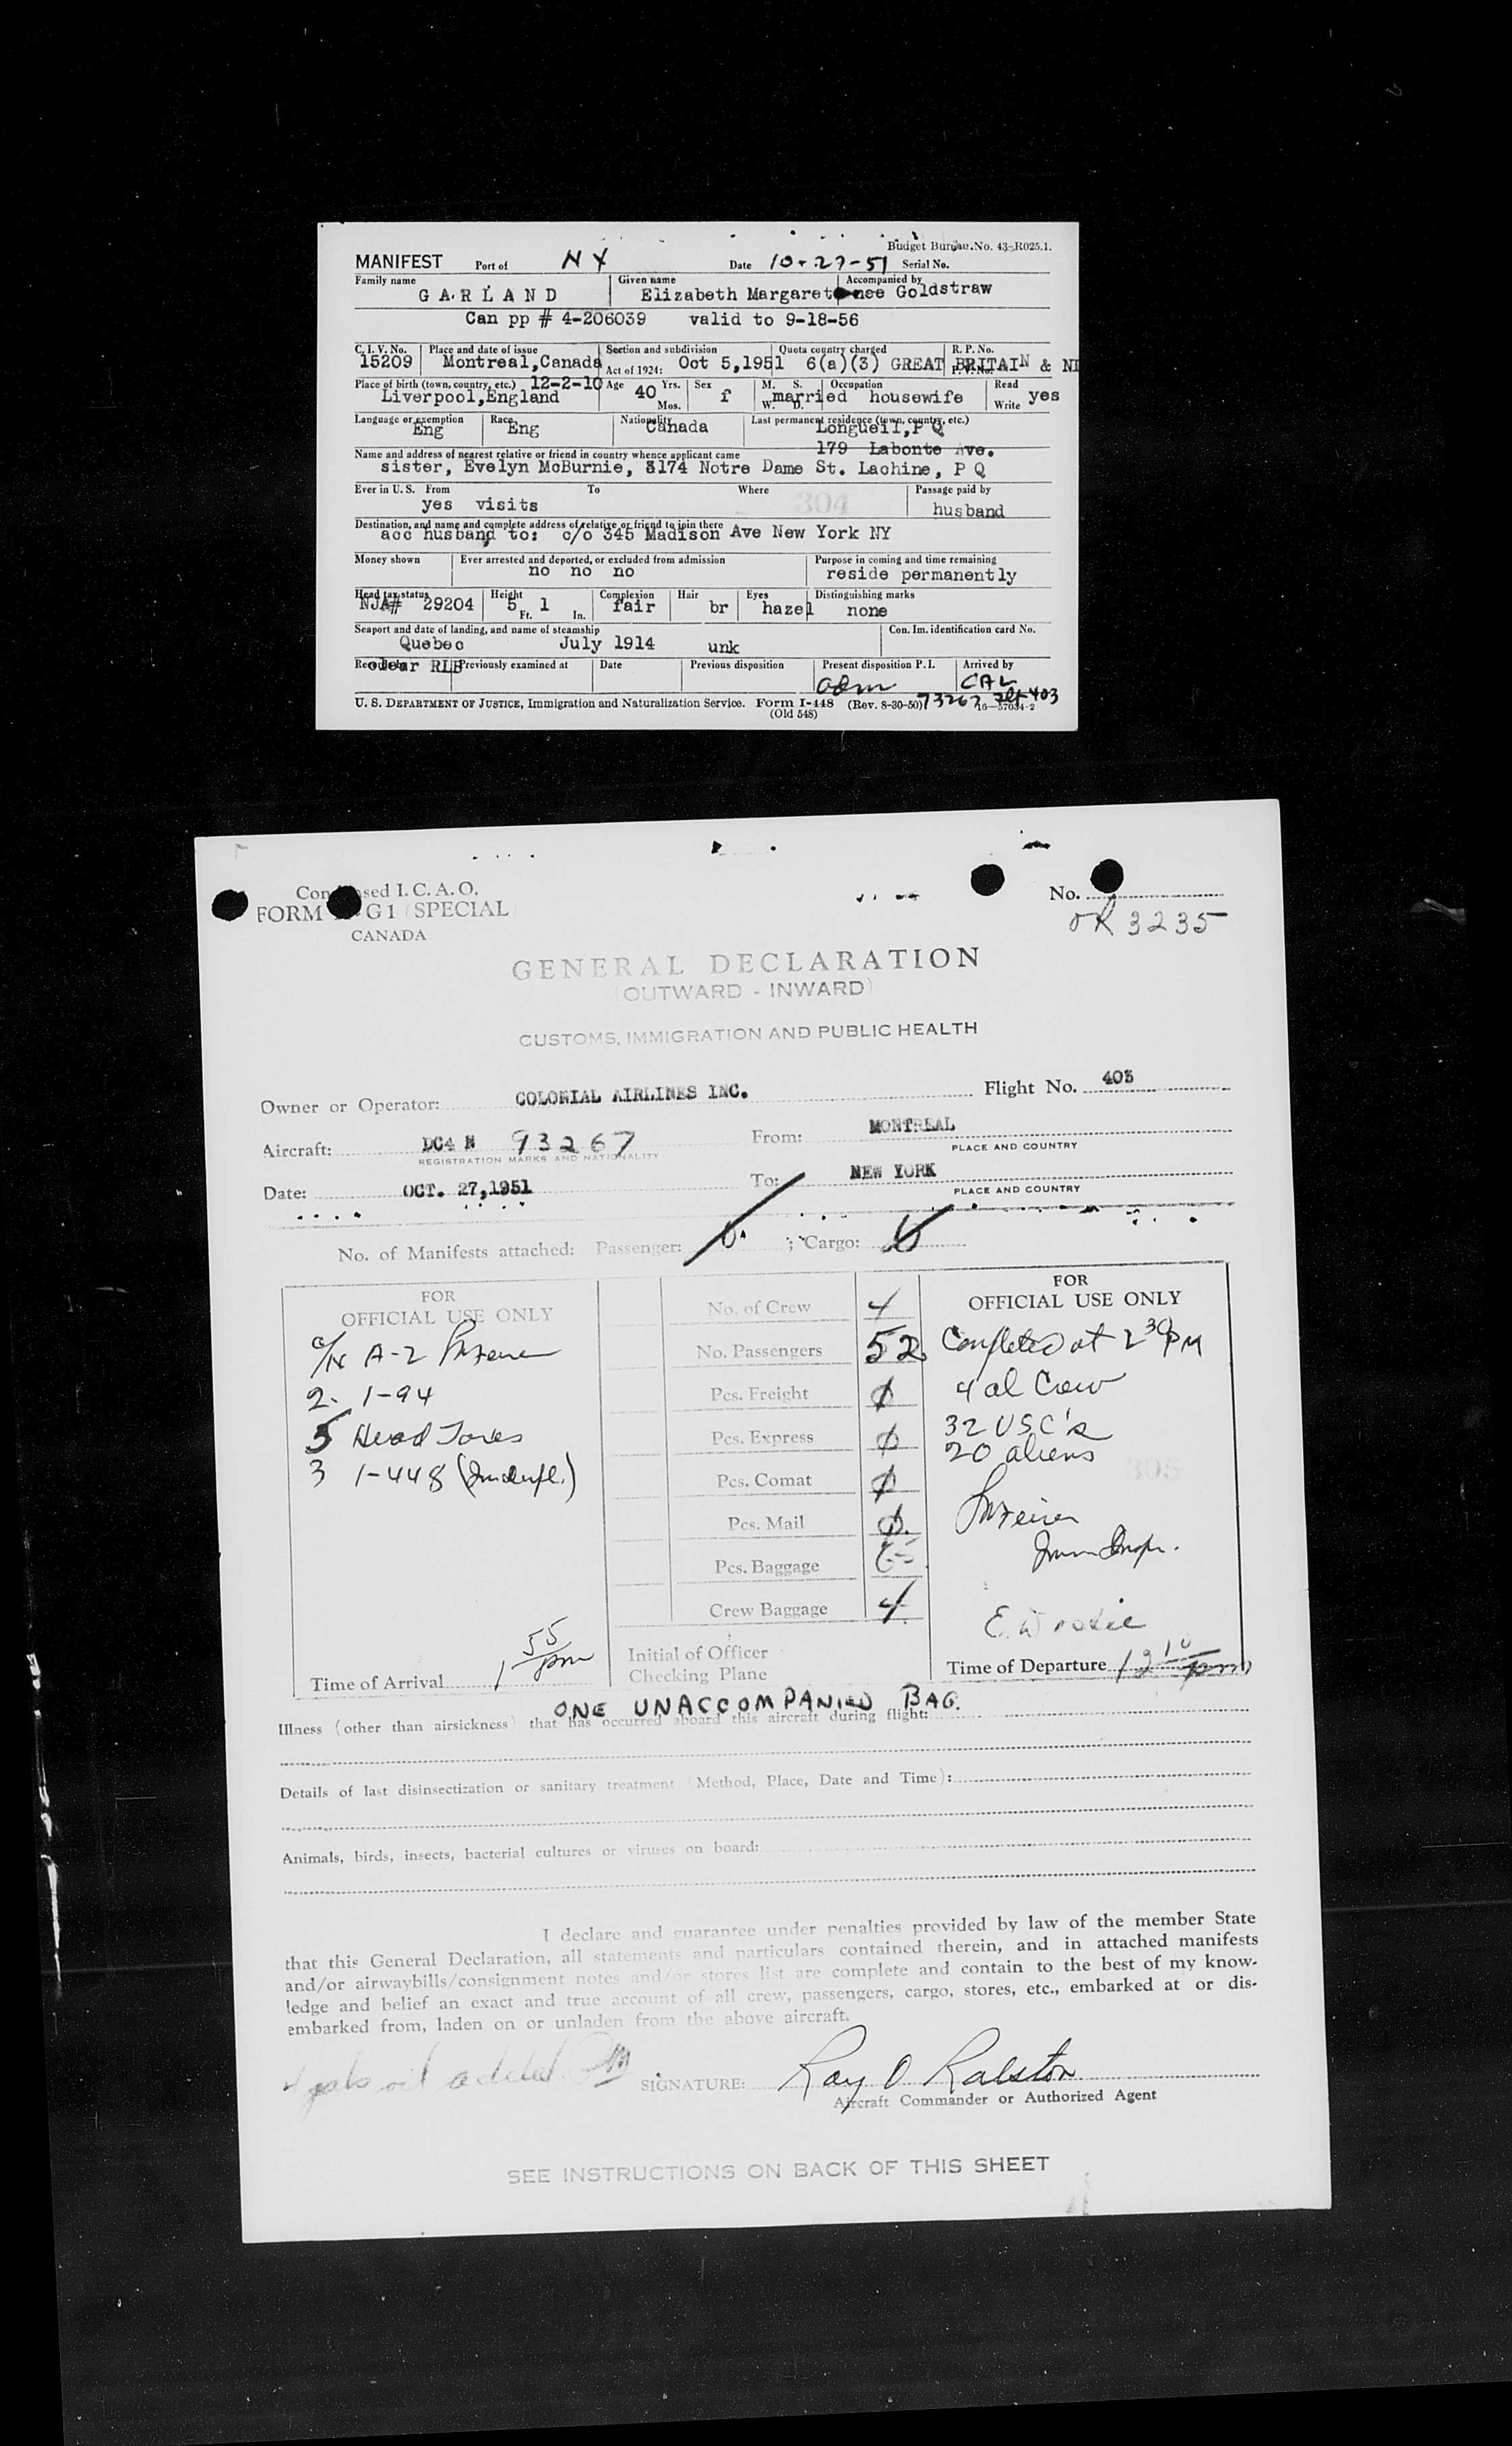 Budget Bureau No. 43-R025.1.
MANIFEST Port of NY Date 10-27-51 Serial No.
Family name Given name Accompanied by
GARLAND Elizabeth Margaret nee Goldstraw
Can pp # 4-206039 valid to 9-18-56
C.I.V. No. Place and date of issue Section and subdivision Quota country charged R. P. No.
15209 Montreal,Canada Act of 1924: Oct 5,1951 6(a)(3) GREAT BRITAIN & NI
Place of birth (town, country, etc.) 12-2-10 Age 40 Yrs. Mos. Sex f M. S. W. D. married Occupation housewife Read Write yes
Liverpool,England
Language or exemption Race Nationality Last permanent residence (town, country, etc.)
Eng Eng Canada Longueil,P Q
179 Labonte Ave.
Name and address of nearest relative or friend in country whence applicant came
sister, Evelyn McBurnie, 3174 Notre Dame St. Lachine, P Q
Ever in U. S. From To Where Passage paid by
yes visits 304 husband
Destination, and name and complete address of relative or friend to join there
acc husband to: c/o 345 Madison Ave New York NY
Money shown Ever arrested and deported, or excluded from admission Purpose in coming and time remaining
no no no reside permanently
Head tax status Height Complexion Hair Eyes Distinguishing marks
NJA# 29204 5 Ft. 1 In. fair br hazel none
Seaport and date of landing, and name of steamship Con. Im. identification card No.
Quebec July 1914 unk
RLB Previously examined at Date Previous disposition Present disposition P. I. Arrived by
adm CAL
U. S. DEPARTMENT OF JUSTICE, Immigration and Naturalization Service. Form I-448 (Rev. 8-30-50) 73267 flt 403
(Old 548) 16—57034-2
Condensed I. C. A. O. No.
FORM G1 (SPECIAL) OR 3235
CANADA
GENERAL DECLARATION
(OUTWARD - INWARD)
CUSTOMS, IMMIGRATION AND PUBLIC HEALTH
Owner or Operator: COLONIAL AIRLINES INC. Flight No. 403
Aircraft: DC4 N 93267 From: MONTREAL
REGISTRATION MARKS AND NATIONALITY PLACE AND COUNTRY
Date: OCT. 27,1951 To: NEW YORK
PLACE AND COUNTRY
No. of Manifests attached: Passenger: ; Cargo:
FOR OFFICIAL USE ONLY
A-2
2. 1-94
5 Head Taxes
3 1-448
Time of Arrival 1 55 pm
No. of Crew 4
No. Passengers 52
Pcs. Freight 0
Pcs. Express 0
Pcs. Comat 0
Pcs. Mail 0
Pcs. Baggage
Crew Baggage 4
Initial of Officer
Checking Plane
FOR
OFFICIAL USE ONLY
Completed at 2 30 PM
4 al Crew
32 USC's
20 aliens
305
Time of Departure 12 10 pm
ONE UNACCOMPANIED BAG.
Illness (other than airsickness) that has occurred aboard this aircraft during flight:
Details of last disinsectization or sanitary treatment (Method, Place, Date and Time):
Animals, birds, insects, bacterial cultures or viruses on board:
I declare and guarantee under penalties provided by law of the member State
that this General Declaration, all statements and particulars contained therein, and in attached manifests
and/or airwaybills/consignment notes and/or stores list are complete and contain to the best of my know-
ledge and belief an exact and true account of all crew, passengers, cargo, stores, etc., embarked at or dis-
embarked from, laden on or unladen from the above aircraft.
gals oil added
SIGNATURE: Ray O Ralston
Aircraft Commander or Authorized Agent
SEE INSTRUCTIONS ON BACK OF THIS SHEET